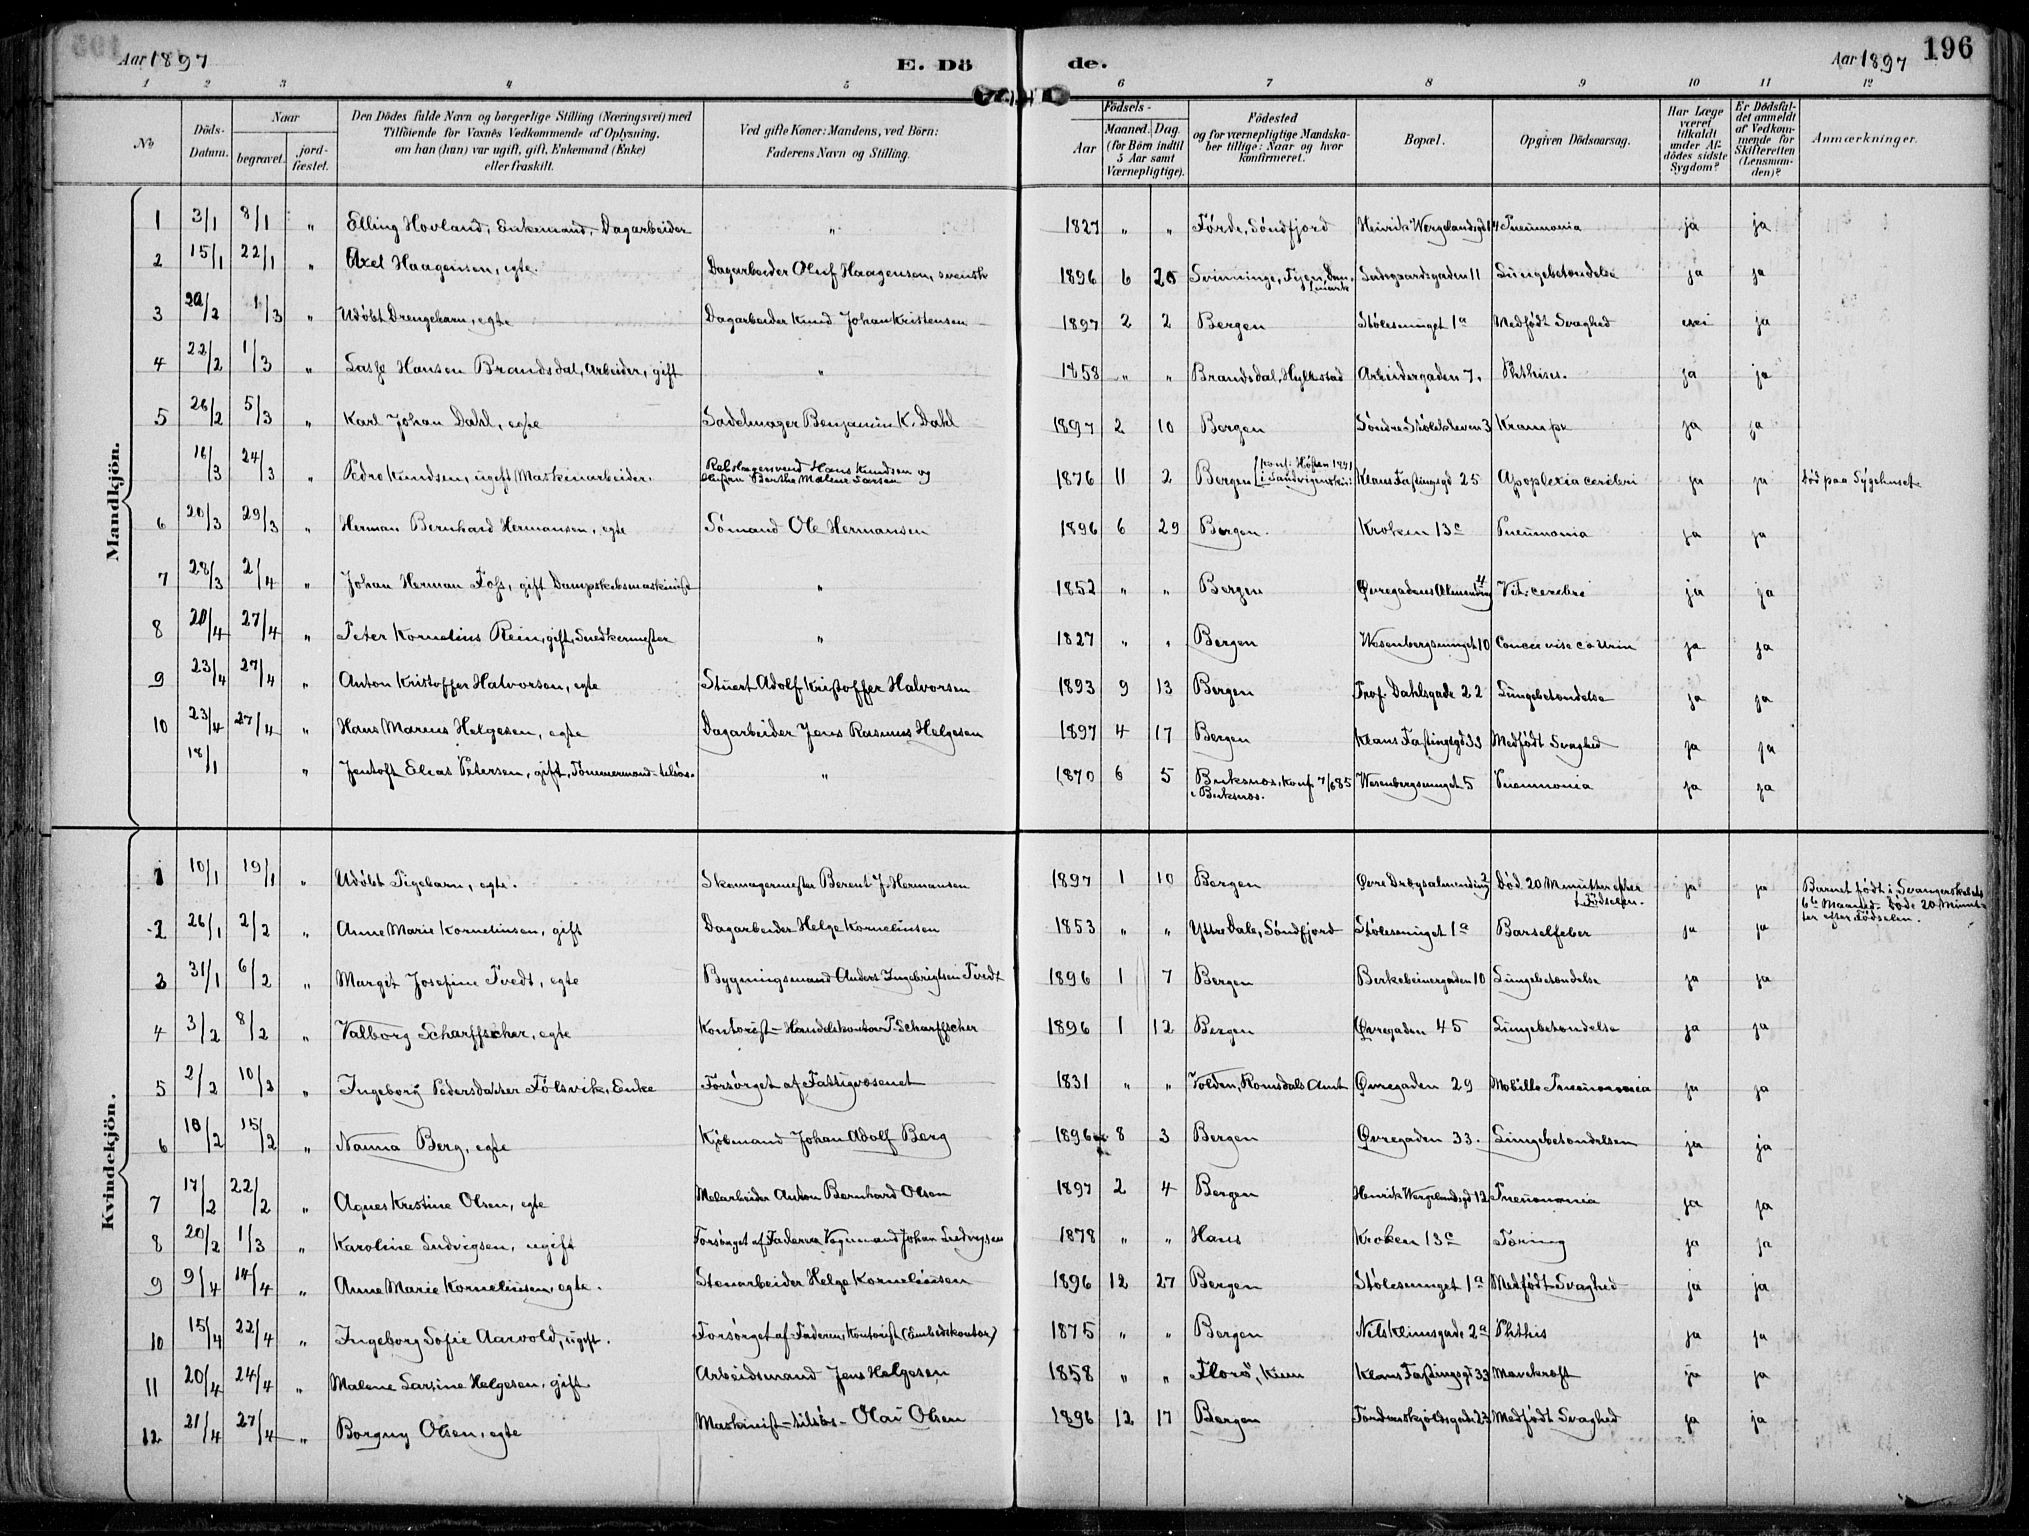 Aar 1897 E. Dö de. Aar 1897 196
1 2 3 4 5 6 7 8 9 10 11 12
No
Döds-Datum.
Naar
begravet.
jord-fæstet.
Den Dödes fulde Navn og borgerlige Stilling (Næringsvei) med
Tilföiende for Voxnes Vedkommende af Oplysning.
om han (hun) var ugift, gift, Enkemand (Enke)
eller fraskilt.
Ved gifte Koner: Mandens, ved Börn:
Faderens Navn og Stilling.
Födsels-
Aar
Maaned. Dag.
(for Börn indtil
5 Aar samt
Værnepligtige).
Födested
og for værnepligtige Mandska-
ber tillige: Naar og hvor
konfirmeret.
Bopæl.
Opgiven Dödsaarsag.
Har Læge
været
tilkaldt
under Af-
dödes sidste
Sygdom?
Er Dödsfal-
det anmeldt
af Vedkom-
mende for
Skifteretten
(Lensman-
den)?
Anmærkninger.
Mandkjön.
1 3/1 8/1 " Elling Hovland, Enkemand, Dagarbeider " 1827 " " Førde, Søndfjord Henrik Wergelandsgd 14 Pneumonia ja ja
2 15/1 22/1 " Axel Haagensen, egte. Dagarbeider Oluf Haagensen, svensk 1896 6 20 Svinninge, Fyen, Danmark Ladegaardsgaden 11 Lungebetændelse ja ja
3 20/2 1/3 " Udøbt Drengebarn, egte Dagarbeider Knud Johan Kristensen 1897 2 2 Bergen Stølesmuget 1a Medfødt Svaghed nei ja
4 22/2 1/3 " Lasse Hansen Brandsdal, Arbeider, gift " 1858 " " Brandsdal, Hyllestad Arbeidergaden 7. Phthises. ja ja
5 26/2 5/3 " Karl Johan Dahl, egte Sadelmager Benjamin K. Dahl 1897 2 10 Bergen Søndre Stølekleven 3 Krampe ja ja
16/3 24/3 " Pedro Knudsen, ugift Maskinarbeider. Rebslagersvend Hans Knudsen og Hustru Berthe Malene Larsen 1876 11 2 Bergen (konf: Høsten 1891 i Sandvigens kirke Klaus Fastingsgd 25 Apoplexia cerebri ja ja Død paa Sygehuset
6 20/3 29/3 " Herman Bernhard Hermansen, egte Sømand Ole Hermansen 1896 6 29 Bergen. Kroken 13c Pneumonia ja ja
7 28/3 2/4 " Johan Herman Foss, gift Dampskibsmaskinist " 1852 " " Bergen Øvregadens Almending 4 Vit: cerebri ja ja
8 20/4 27/4 " Peter Kornelius Rein, gift, Snedkermester " 1827 " " Bergen Wesenbergsmuget 10 ja ja
9 23/4 27/4 " Anton Kristoffer Halvorsen, egte Stuert Adolf Kristoffer Halvorsen 1893 9 13 Bergen Prof. Dahlsgade 22 Lungebetændelse ja ja
10 23/4 27/4 " Hans Marius Helgesen, egte Dagarbeider Jens Rasmus Helgesen 1897 4 17 Bergen Klaus Fastingsgd 33 Medfødt Svaghed ja ja
18/1 " Jentoft Elias Petersen, gift, Tømmermand-tilsøs " 1870 6 5 Buksnæs, konf 7/6 85 i Buksnæs. Wesenbergsmuget 5 Pneumonia ja ja
Kvindekjön.
1 10/1 19/1 " Udøbt Pigebarn, egte. Skomagermester Berent J. Hermansen 1897 1 10 Bergen Øvre Drægsalmending 2 Død 20 Minutter efter Fødselen. ja ja Barnet født i Svangerskabets 6te Maaned. Døde 20 Minutter efter Fødselen.
2 26/1 2/2 " Anne Marie Korneliusen, gift Dagarbeider Helge Korneliusen 1853 " " Ytre Dale, Søndfjord Stølesmuget 1a Barselfeber ja ja
3 31/1 6/2 " Margit Josefine Tvedt, egte Bygningsmand Anders Ingebrigtsen Tvedt 1896 1 7 Bergen Berkebeinergaden 10 Lungebetændelse ja ja
4 3/2 8/2 " Valborg Scharffscher, egte Kontorist-Handelskontor P. Scharffscher 1896 1 12 Bergen Øvregaden 45 Lungebetændelse ja ja
5 2/2 10/2 " Ingeborg Pedersdatter Følsvik, Enke Forsørget af Fattigvæsenet 1831 " " Volden, Romsdals Amt Øvregaden 29 Mobille Pneumonia ja ja
6 10/2 15/2 " Nanna Berg, egte Kjøbmand Johan Adolf Berg 1896 8 3 Bergen Øvregaden 33. Lungebetændelsen ja ja
7 17/2 22/2 " Agnes Kristine Olsen, egte Melarbeider Anton Bernhard Olsen 1897 2 4 Bergen Henrik Wergelandsgd 12 Pneumonia ja ja
8 20/2 1/3 " Karoline Ludvigsen, ugift Forsørget af Faderen Vognmand Johan Ludvigsen 1878 " " Haus Kroken 13c Tæring ja ja
9 9/4 14/4 " Anne Marie Korneliusen, egte. Stenarbeider Helge Korneliusen 1896 12 27 Bergen Stølesmuget 1a Medfødt Svaghed ja ja
10 15/4 22/4 " Ingeborg Sofie Aarvold, ugift. Forsørget af Faderen, Kontorist (Embedskontor) 1875 " " Bergen Nels Klimsgade 2a Phthis ja ja
11 20/4 24/4 " Malene Larsine Helgesen, gift Arbeidsmand Jens Helgesen 1858 " " Florø, Kinn Klaus Fastingsgd 33 Mavekræft ja ja
12 21/4 27/4 " Borgny Olsen, egte Maskinist-tilsøs- Olai Olsen 1896 12 17 Bergen Tordenskjoldsgade 23 Medfødt Svaghed ja ja